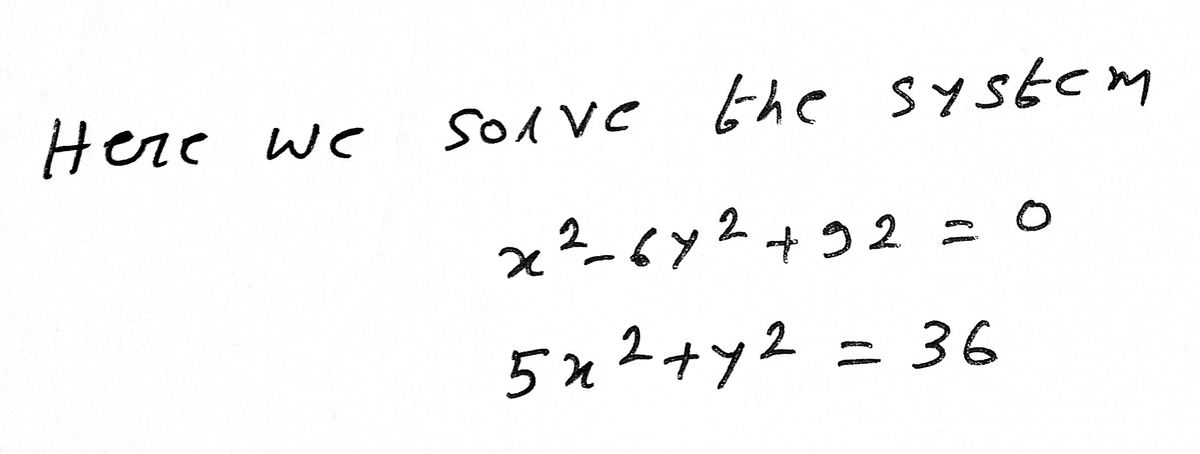 Here we solve the system
x²-6y²+92 = 0
5x²+y² = 36